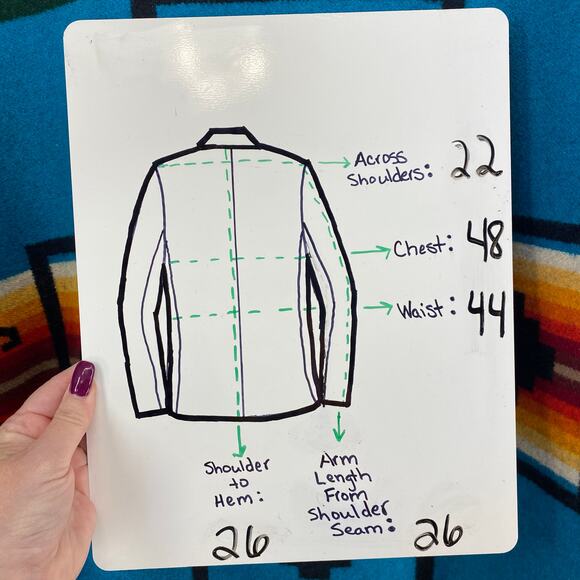 Across
Shoulders: 22
Chest: 48
Waist: 44
Shoulder
to
Hem:
26
Arm
Length
From
Shoulder
Seam: 26